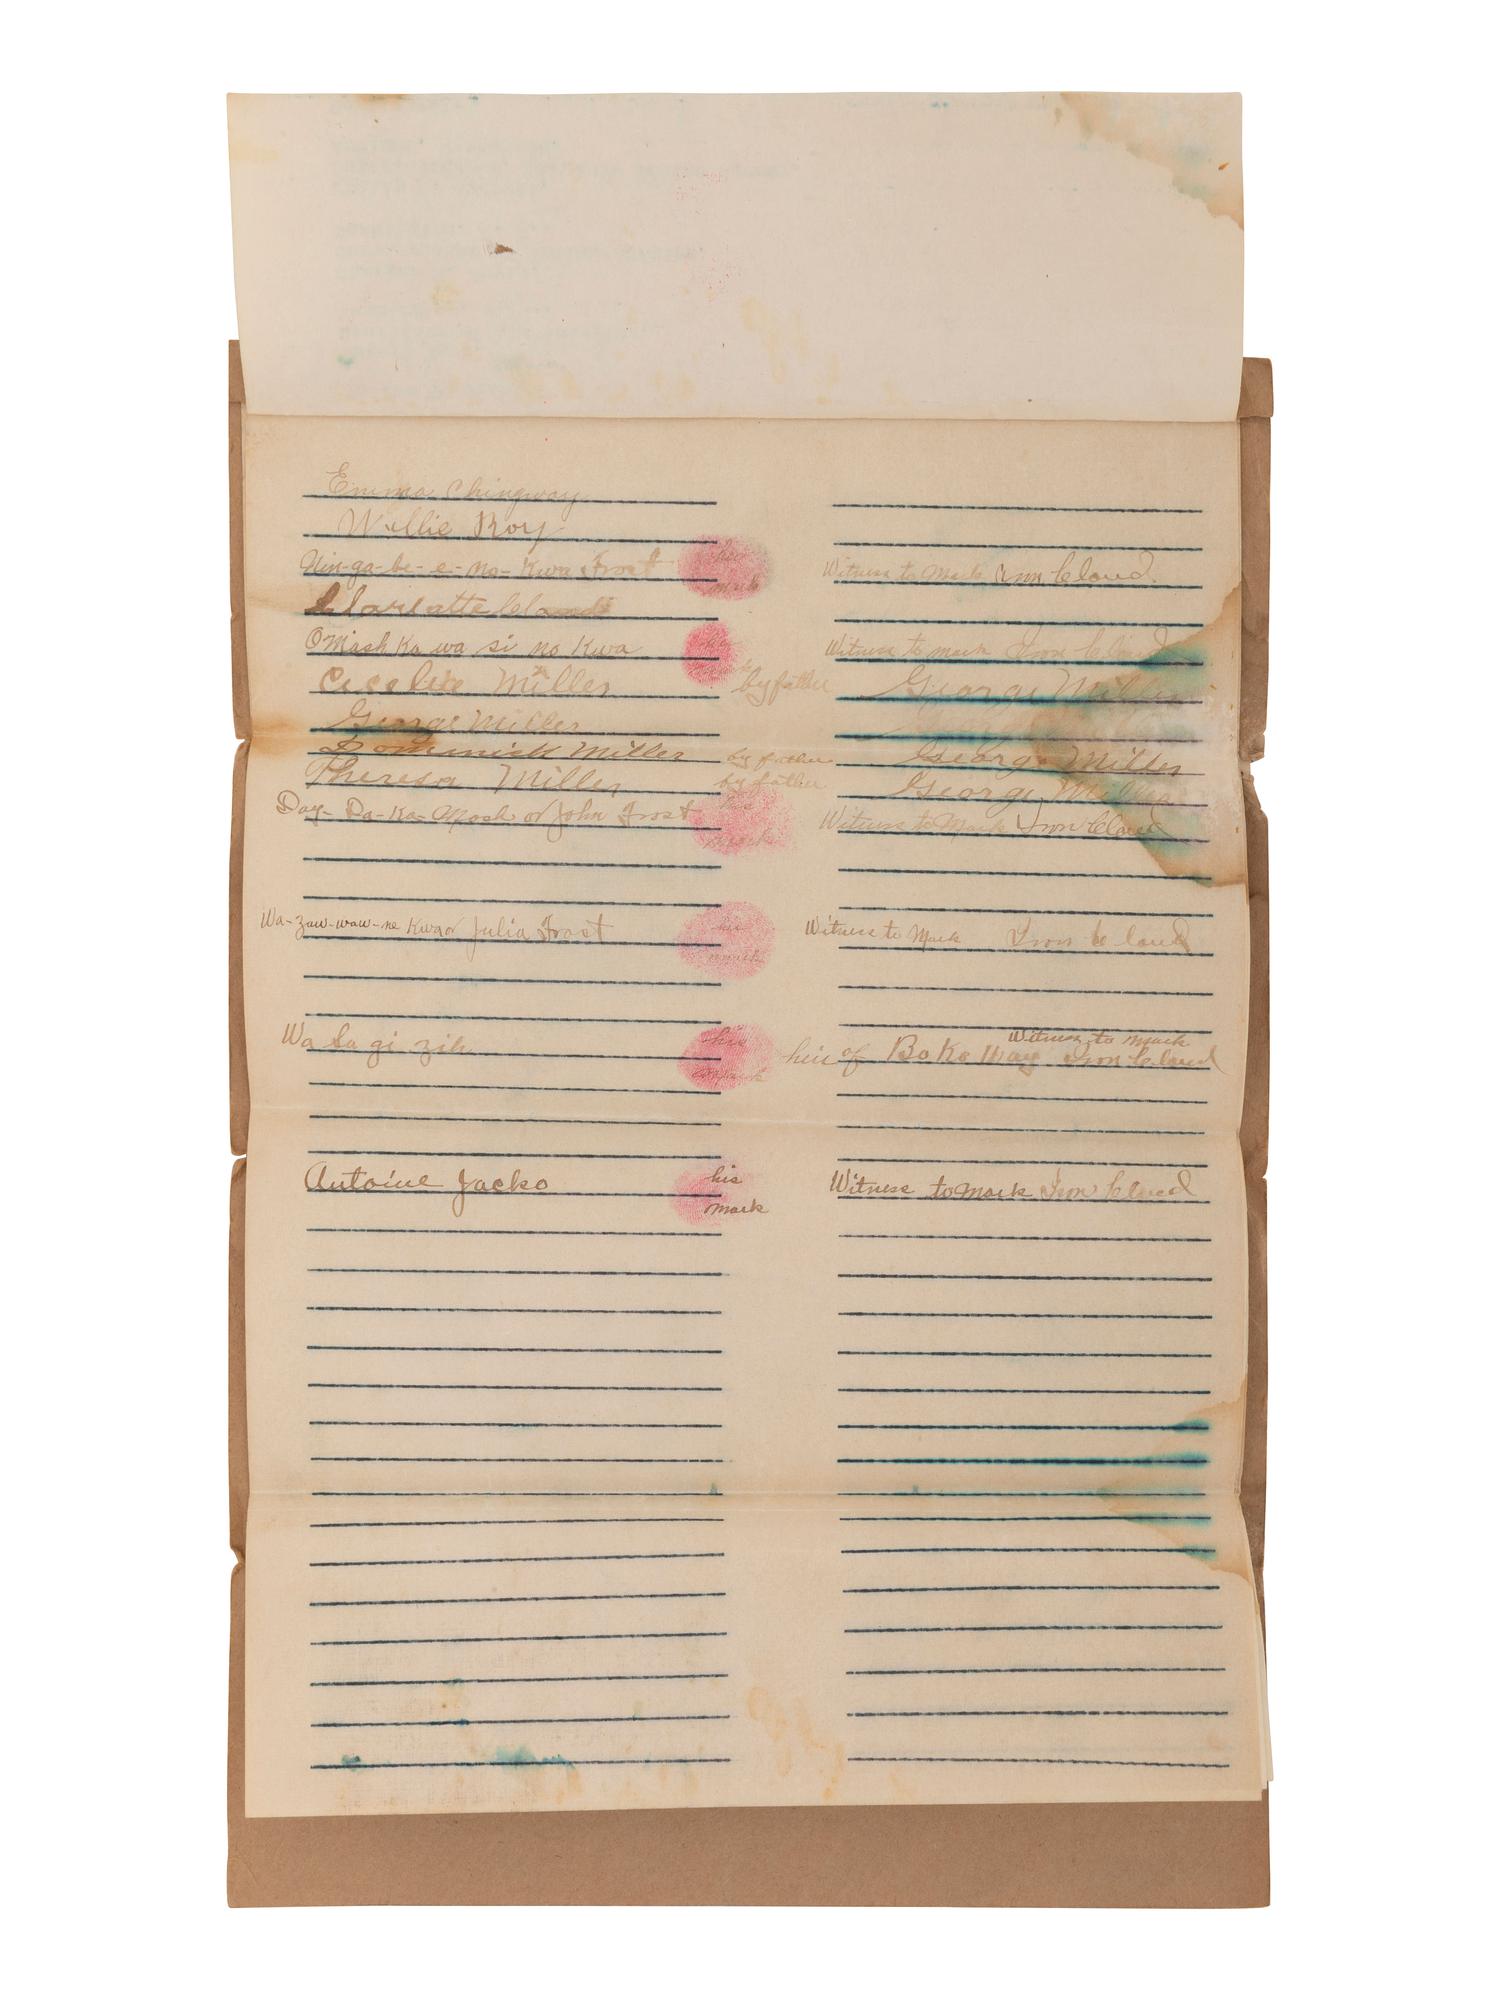 Emma Chingway
Willie Roy
Nin-ga-be-e-no-Kwa Frost his mark Witness to Mark Iron Cloud.
Charlotte Cloud
O Mash Ka wa si no Kwa mark Witness to mark Iron Cloud
Cecelia Miller by father George Miller
George Miller
Dominick Miller by father George Miller
Theresa Miller by father George Miller
Day-Da-Ka-Mosh or John Frost his mark Witness to Mark Iron Cloud
Wa-zaw-waw-ne Kwa or Julia Frost his mark Witness to Mark Iron Cloud
Witness to mark
Wa Sa gi zih his mark heir of Bo Ke Way Iron Cloud
Antoine Jacko his mark Witness to Mark Iron Cloud